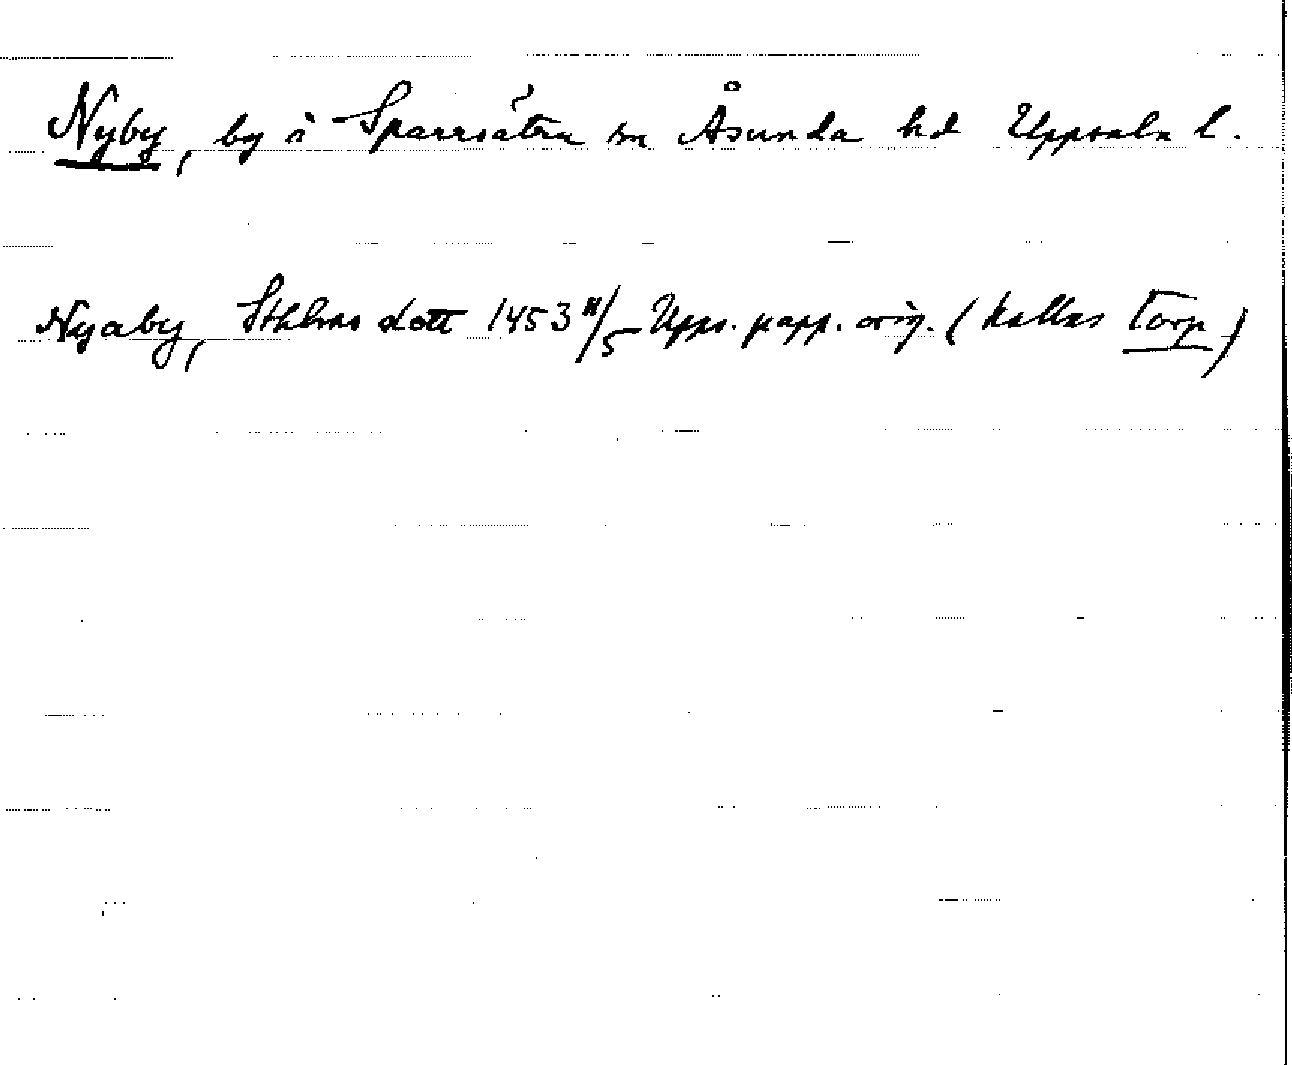 Nyby, by i Sparrsätra sn Åsunda hd Uppsala l.
Nyaby, Sthlms dott 1453 11/5 Upps. papp. orig. (kallas Torp)